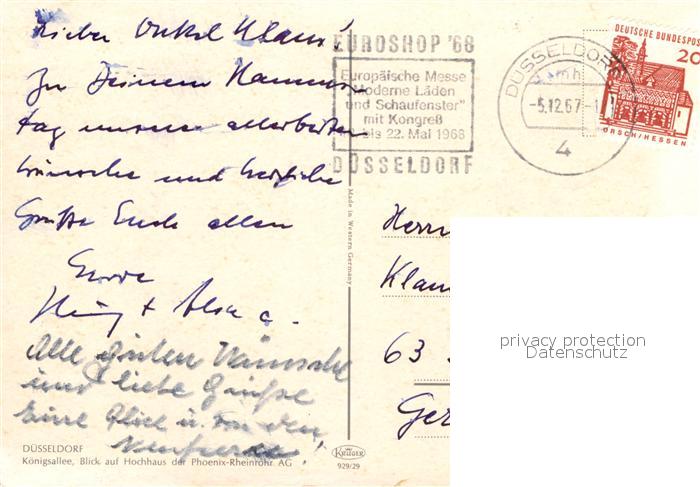 Lieber Onkel Klaus!
Zu Deinem Namens-
tag unsere allerbesten
Wünsche und herzliche
Grüße Euch allen
Eure
Alle guten Wünsche
und liebe Grüße
DÜSSELDORF
Königsallee, Blick auf Hochhaus der Phoenix-Rheinrohr AG
EUROSHOP '68
Europäische Messe
"Moderne Läden
und Schaufenster"
mit Kongreß
bis 22. Mai 1968
DÜSSELDORF
DÜSSELDORF
-5.12.67-1
4
DEUTSCHE BUNDESPOST
20
LORSCH/HESSEN
Made in Western Germany
KRÜGER
929/29
Herrn
Klau
63
privacy protection
Datenschutz